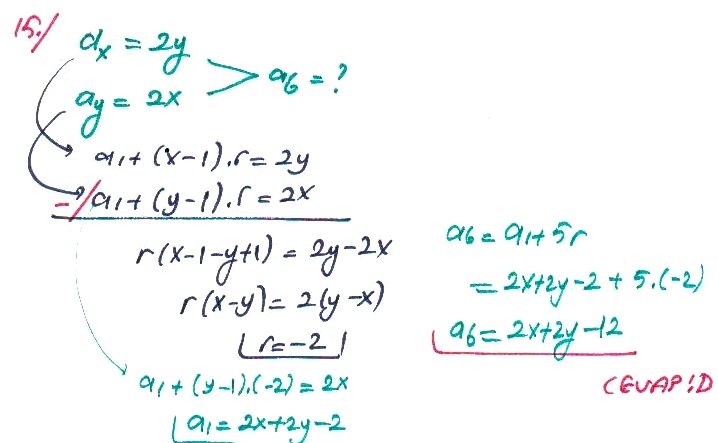 15./
a_x = 2y
a_y = 2x
a_6 = ?
a_1 + (x-1).r = 2y
-/ a_1 + (y-1).r = 2x
r(x-1-y+1) = 2y-2x
r(x-y) = 2(y-x)
r=-2
a_1 + (y-1).(-2) = 2x
a_1 = 2x+2y-2
a_6 = a_1+5r
= 2x+2y-2 + 5.(-2)
a_6 = 2x+2y-12
CEVAP:D